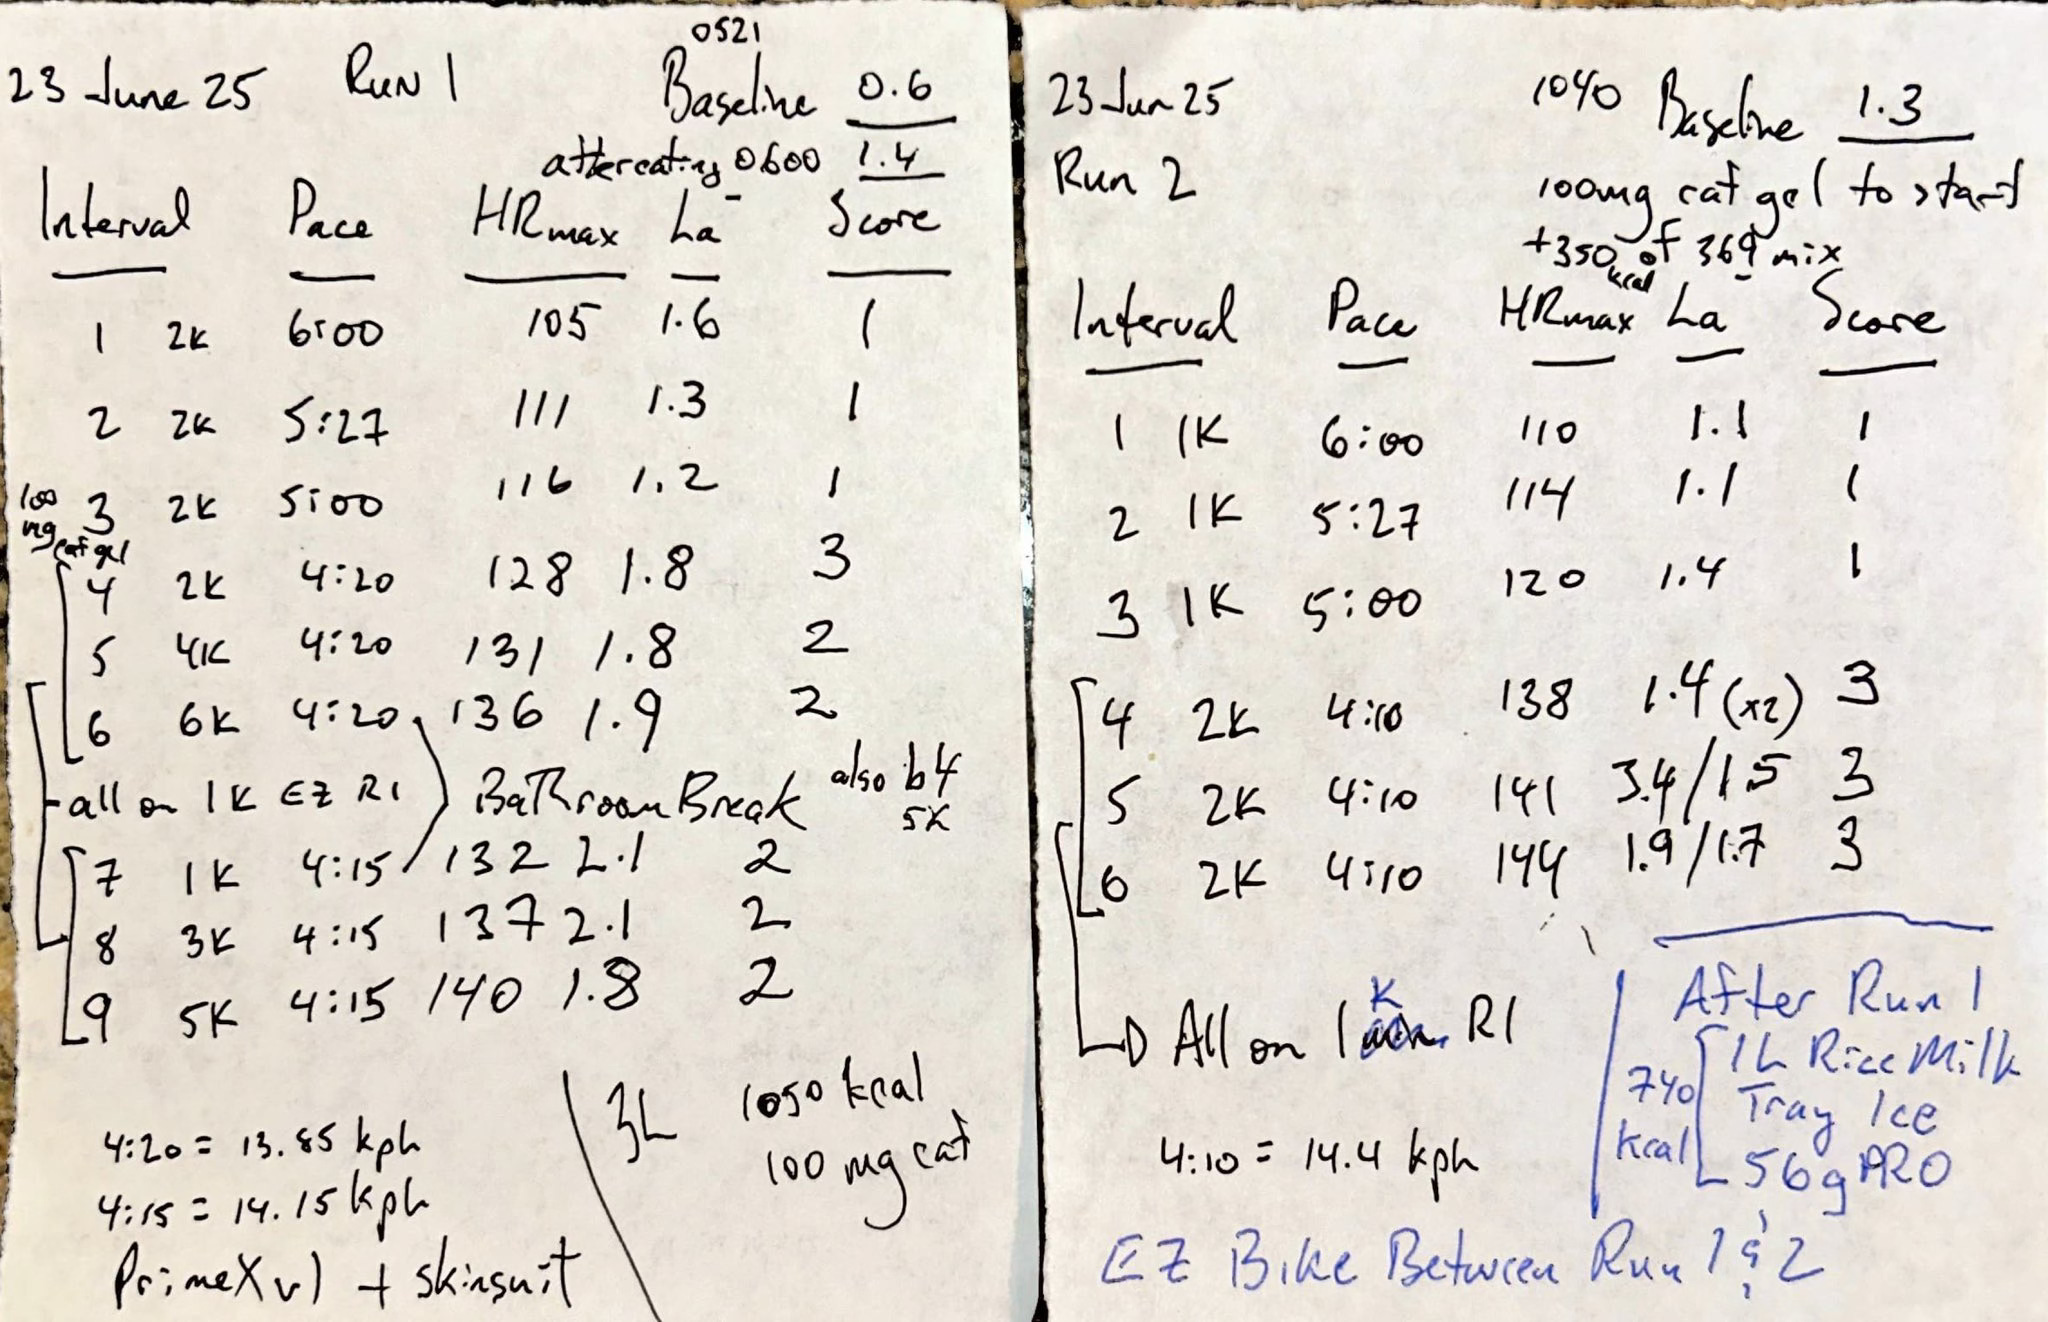 23 June 25 Run 1 0521 Baseline 0.6
after eating 0600 1.4
Interval Pace HRmax La⁻ Score
1 2K 6:00 105 1.6 1
2 2K 5:27 111 1.3 1
100 mg caf gel 3 2K 5:00 116 1.2 1
4 2K 4:20 128 1.8 3
5 4K 4:20 131 1.8 2
6 6K 4:20 136 1.9 2
all on 1K EZ RI BaThroom Break also b4 5K
7 1K 4:15 132 2.1 2
8 3K 4:15 137 2.1 2
9 5K 4:15 140 1.8 2
4:20 = 13.85 kph
4:15 = 14.15 kph
PrimeX v1 + skinsuit
3L 1050 kcal
100 mg caf
23 Jun 25 1040 Baseline 1.3
Run 2 100mg caf gel to start
+350 kcal of 369 mix
Interval Pace HRmax La⁻ Score
1 1K 6:00 110 1.1 1
2 1K 5:27 114 1.1 1
3 1K 5:00 120 1.4 1
4 2K 4:10 138 1.4 (x2) 3
5 2K 4:10 141 3.4/1.5 3
6 2K 4:10 144 1.9/1.7 3
All on 1 K RI
4:10 = 14.4 kph
After Run 1
740 kcal
1L Rice Milk
Tray Ice
56g PRO
EZ Bike Between Run 1 & 2